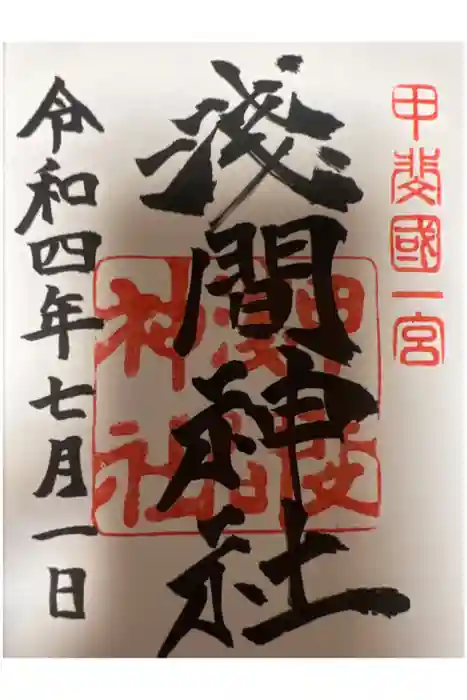 甲斐國一宮
淺間神社
令和四年七月一日